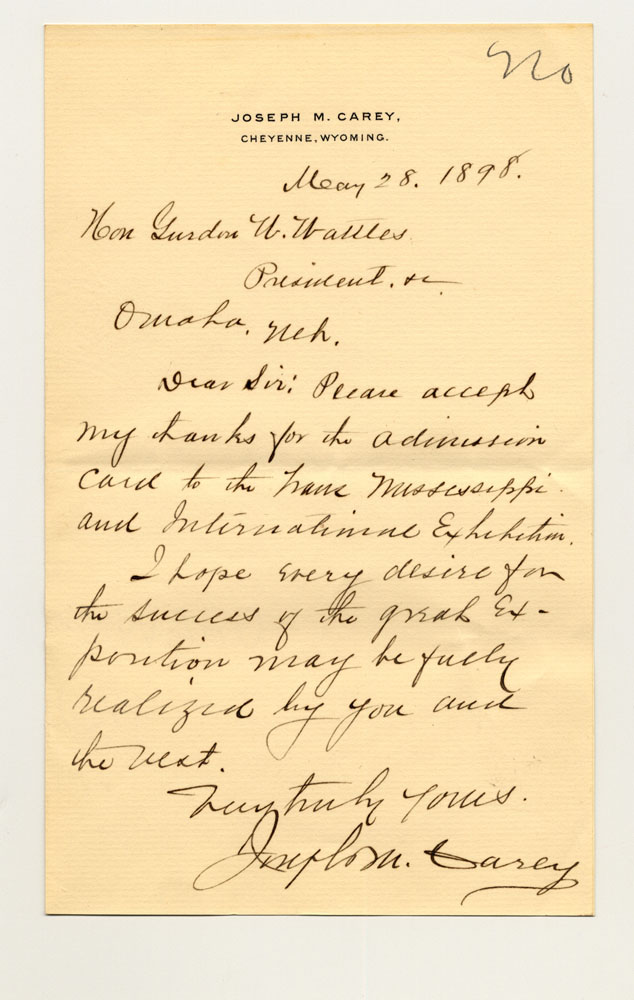 No
JOSEPH M. CAREY,
CHEYENNE, WYOMING.
May 28. 1898.
Hon Gurdon W. Wattles
President. &c
Omaha. Neb.
Dear Sir: Please accept
my thanks for the admission
card to the Trans Mississippi
and International Exhibition.
I hope every desire for
the success of the great Ex-
position may be fully
realized by you and
the West.
Very truly yours.
Joseph M. Carey